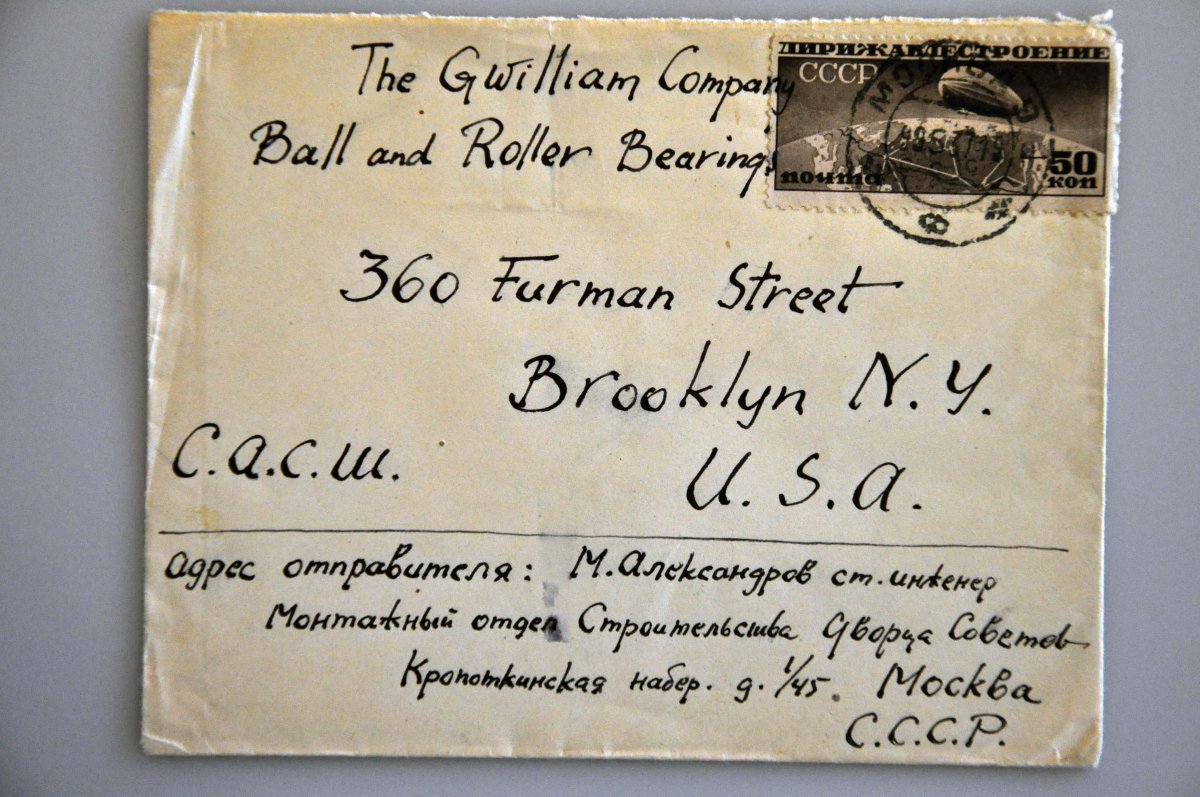 The Gwilliam Company
Ball and Roller Bearings
ДИРИЖАБЛЕСТРОЕНИЕ
СССР
МОСКВА
почта
50
коп
360 Furman Street
Brooklyn N.Y.
С.А.С.Ш.
U.S.A.
Адрес отправителя: М.Александров ст.инженер
Монтажный отдел Строительства Дворца Советов
Кропоткинская набер. д. 1/45. Москва
С.С.С.Р.